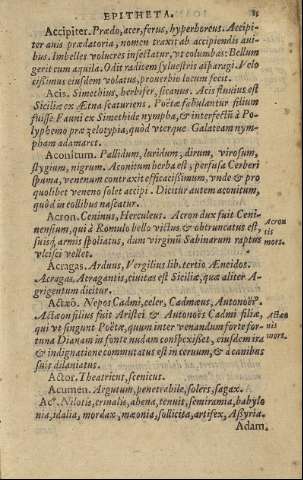 EPITHETA.
Accipiter. Prædo, acer, ferus, hyperboreus. Accipi-
ter auis prædatoria, nomen traxit ab accipiendis aui-
bus. Imbelles volucres insectatur, vt columbas: Bellum
gerit cum aquila. Odit radicem syluestris asparagi. Velo
cissimus eiusdem volatus, prouerbio locum fecit.
Acis. Simethius, herbifer, sicanus. Acis fluuius est
Siciliæ ex Ætna scaturiens. Poëtæ fabulantur filium
fuisse Fauni ex Simethide nympha, & interfectũ à Po-
lyphemo præ zelotypia, quòd vterque Galateam nym-
pham adamaret.
Aconitum. Pallidum, luridum, dirum, virosum,
stygium, nigrum. Aconitum herba est, perfusa Cerberi
spuma, venenum contraxit efficacissimum, vnde & pro
quolibet veneno solet accipi. Dicitur autem aconitum,
quòd in cotibus nascatur.
Acron. Ceninus, Herculeus. Acron dux fuit Ceni-
nensium, qui à Romulo bello victus & obtruncatus est,
suisq; armis spoliatus, dum virginũ Sabinarum raptus
vlcisci vellet.
Acron
tis
mors.
Acragas. Arduus, Vergilius lib. tertio Æneidos.
Acragas, Acragantis, ciuitas est Siciliæ, quæ aliter A-
grigentum dicitur.
Actæõ. Nepos Cadmi, celer, Cadmæus, Autonoëꝰ.
Actæon filius fuit Aristei & Autonoës Cadmi filiæ,
qui vt singunt Poëtæ, quum inter venandum forte for-
tuna Dianam in fonte nudam conspexisset, eiusdem ira
& indignatione commutatus est in ceruum, & à canibus
suis dilaniatus.
Actæo
nis
mors.
Actor. Theatricus, scenicus.
Acumen. Argutum, penetrabile, solers, sagax.
Acꝰ. Nilotis, crinalis, ahena, tenuis, semiramia, babylo
nia, idalia, mordax, mæonia, sollicita, artifex, Assyria.
Adam.